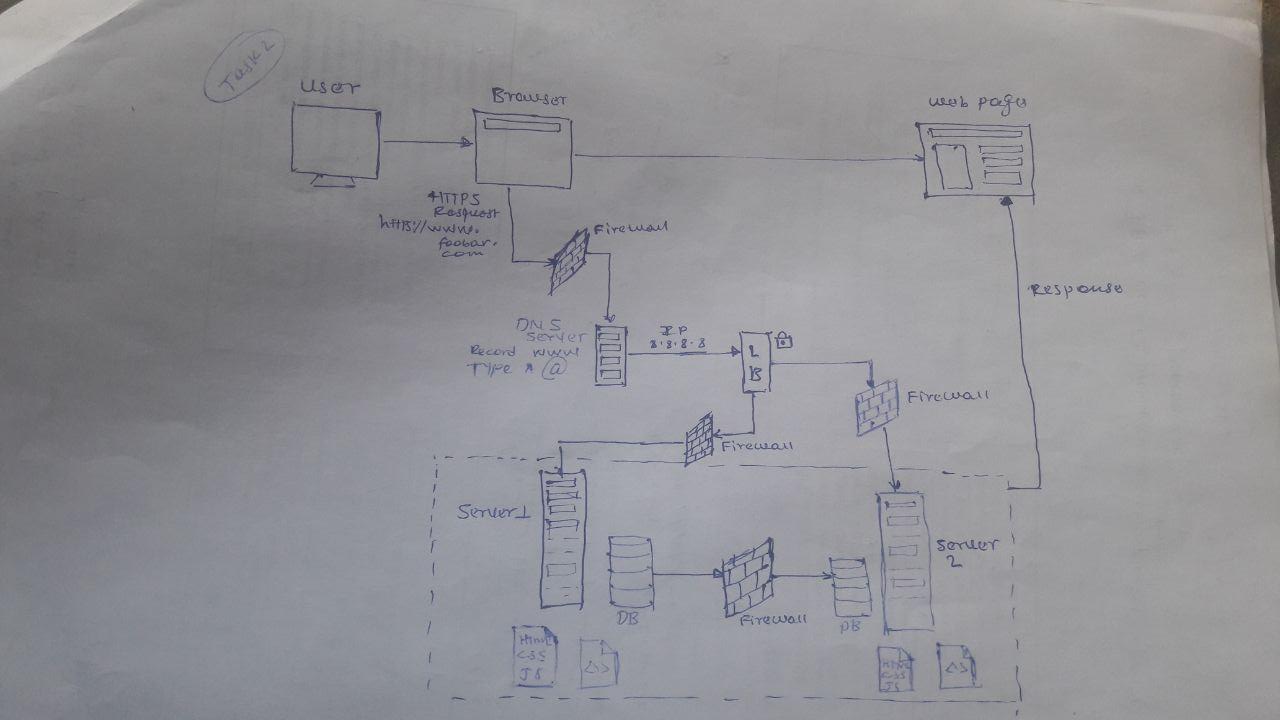 Task 2
User
Browser
web page
HTTPS
Request
https://www.
foobar.
com
Firewall
Response
DNS
Server
Record www
Type A @
IP
8.8.8.8
L
B
Firewall
Firewall
Server 1
Server
2
DB
Firewall
DB
HTML
CSS
JS
</>
HTML
CSS
JS
</>